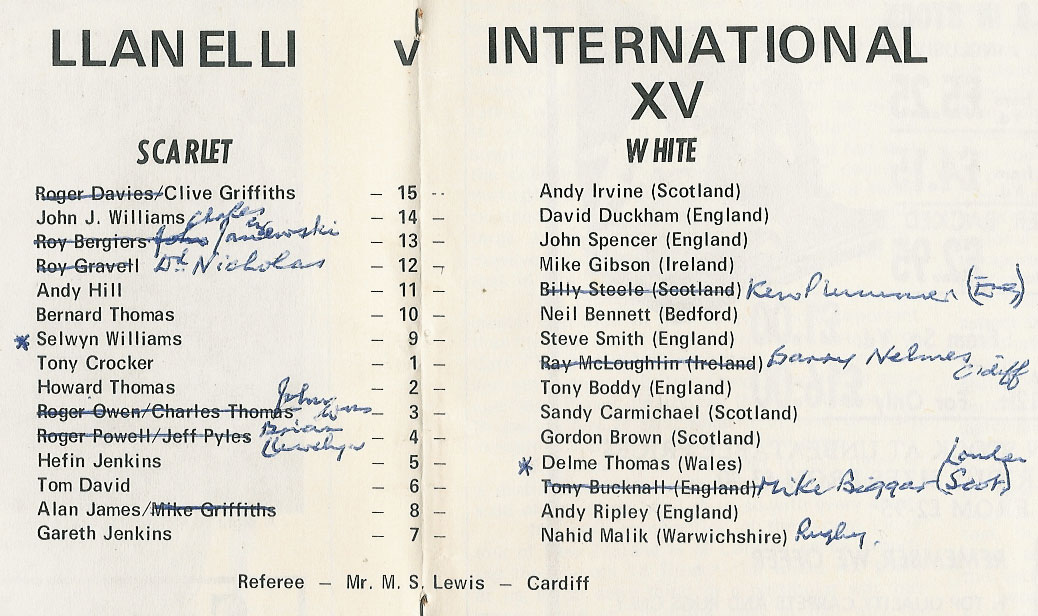 LLANELLI v INTERNATIONAL
XV
SCARLET WHITE
Roger Davies/Clive Griffiths – 15 -- Andy Irvine (Scotland)
John J. Williams Charles – 14 – David Duckham (England)
Roy Bergiers John Janzewski – 13 – John Spencer (England)
Roy Gravell Dd Nicholas – 12 – Mike Gibson (Ireland)
Andy Hill – 11 – Billy Steele (Scotland) Ken Plummer (Eng)
Bernard Thomas – 10 – Neil Bennett (Bedford)
* Selwyn Williams – 9 – Steve Smith (England)
Tony Crocker – 1 – Ray McLoughlin (Ireland) Barry Nelmes Cdiff
Howard Thomas – 2 – Tony Boddy (England)
Roger Owen/Charles Thomas John – 3 – Sandy Carmichael (Scotland)
Roger Powell/Jeff Pyles Brian Llewelyn – 4 – Gordon Brown (Scotland)
Hefin Jenkins – 5 – * Delme Thomas (Wales)
Tom David – 6 – Tony Bucknall (England) Mike Biggar London (Scot)
Alan James/Mike Griffiths – 8 – Andy Ripley (England)
Gareth Jenkins – 7 – Nahid Malik (Warwichshire) Rugby.
Referee – Mr. M. S. Lewis – Cardiff